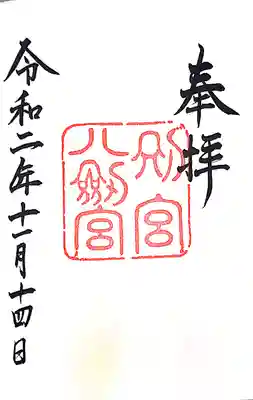 奉拝
別宮
八剱宮
令和二年十一月十四日